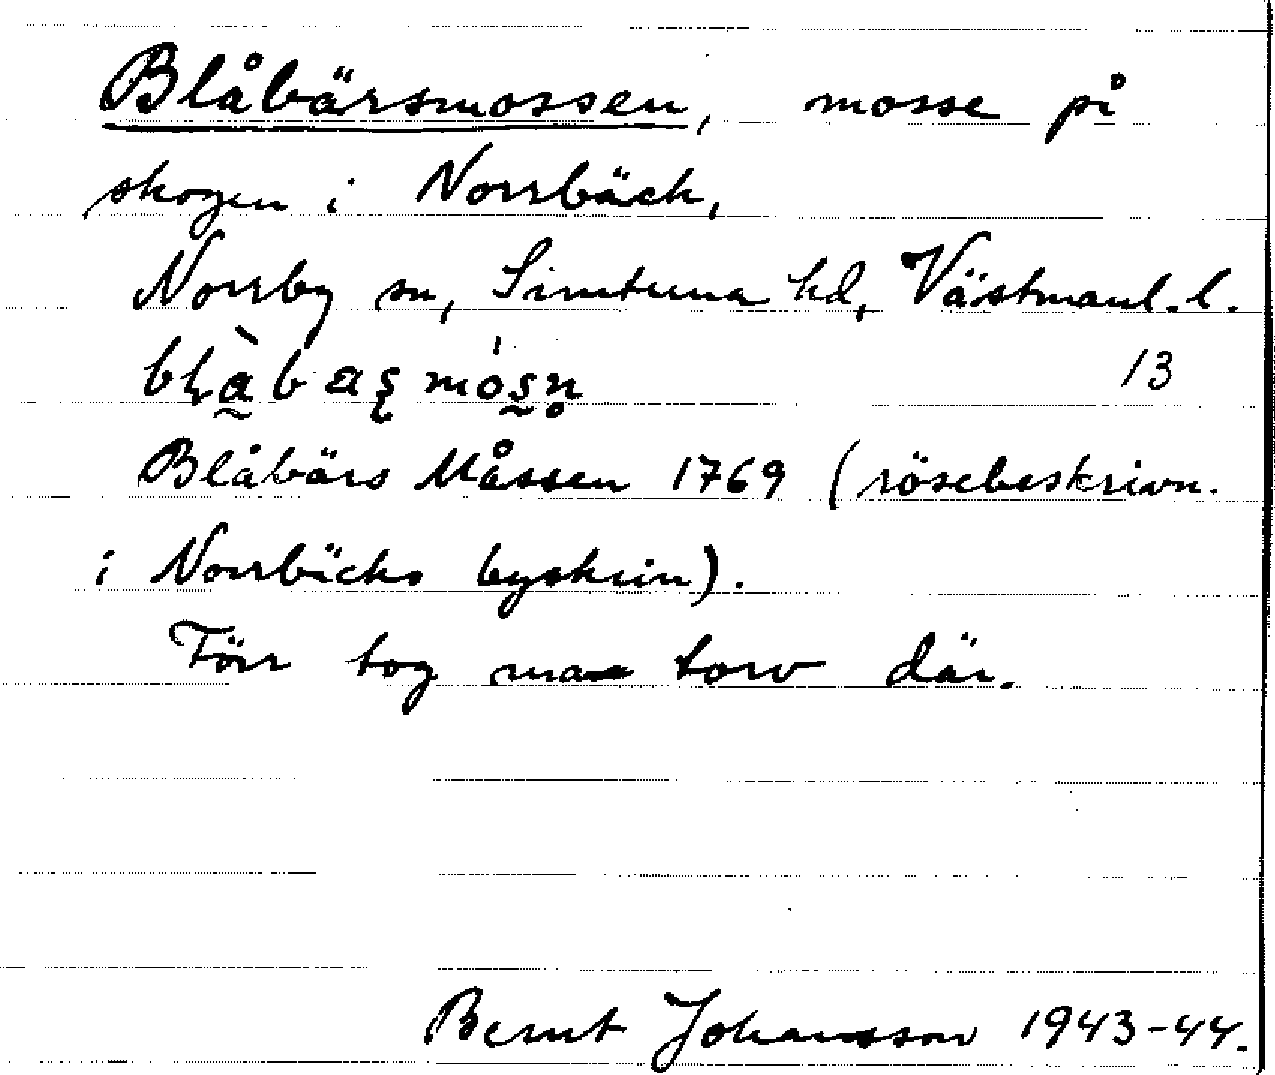 Blåbärsmossen, mosse på
skogen i Norrbäck,
Norrby sn, Simtuna hd, Västmanl. l.
13
Blåbärs Måssen 1769 (rösebeskrivn.
i Norrbäcks byskrin).
Förr tog man torv där.
Bernt Johansson 1943-44.